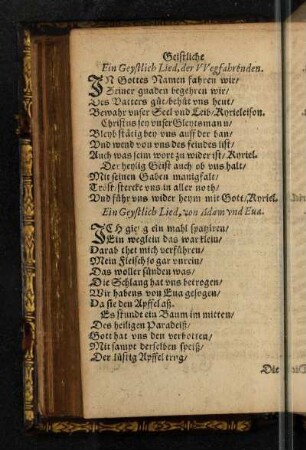 Geistliche
Ein Geystlich Lied, der VVegfahrenden.
IN Gottes Namen fahren wir/
Seiner gnaden begehren wir/
Des Vatters güt/behüt vns heut/
Bewahr vnser Seel vnd Leib/Kyrieleison.
Christus sey vnser Gleytsmann/
Bleyb stätig bey vns auff der ban/
Vnd wend von vns des feindes list/
Auch was seim wort zu wider ist/Kyriel.
Der heylig Geist auch ob vns halt/
Mit seinen Gaben manigfalt/
Trost stercke vns in aller noth/
Vnd führ vns wider heym mit Gott/Kyriel.
Ein Geystlich Lied, von Adam vnd Eua.
ICH gieng ein mahl spatziren/
Ein weglein das war klein/
Darab thet mich verführen/
Mein Fleisch so gar vnrein/
Das woller sünden was/
Die Schlang hat vns betrogen/
Wir habens von Eua gesogen/
Da sie den Apffel aß.
Es stundt ein Baum im mitten/
Des heiligen Paradeiß/
Gott hat vns den verbotten/
Mit sampt derselben speiß/
Der lüstig Apffel trug/
Die